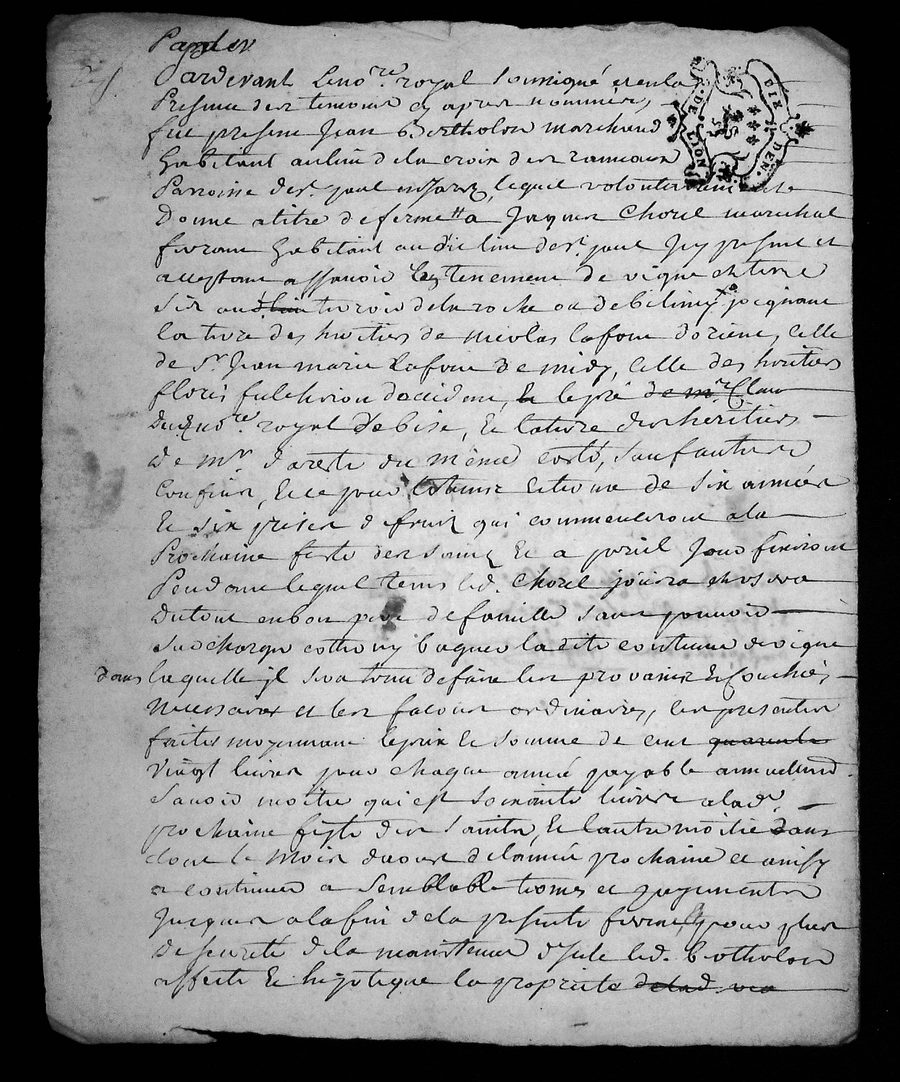 Pardev
Pardevant le no.re royal soussigné et en la
Presence des temoins cy apres nommés,
fut present Jean Bertholon marchand
habitant au lieu de la croix des rameaux
Parroisse de s.t paul en Jarez, lequel volontairement
Donne a titre de ferme a Jacques Chorel marechal
ferrant habitant au dit lieu de s.t paul Icy present et
acceptant assavoir les tenement de vigne et terre
Sis au terroir de la roche ou de joignant
la terre des heritiers de nicolas lafont d'orient, celle
de S.r Jean marie lafont de midy, celle des heritiers
floris fulchiron d'occident, le le pré de m.re Clau
no.re royal de bise, et la terre des heritiers
de m.r dareste du même costé, sauf autres
Confins, Et ce pour le tems et terme de six années
et six prises de fruits qui commenceront a la
Prochaine feste des saints et a pareil jour finiront
Pendant lequel tems led. Chorel joüira et usera
du tout en bon pere de famille sans pouvoir
la dite contenue de vigne
dans laquelle il sera tenu de faire les provains et couchées
necessaires et les façons ordinaires, les presentes
faites moyennant le prix et somme de cent quarante
vingt livres pour chaque année payable annuellem.t
Savoir moitié qui est soixante livres a lad.e
prochaine feste des saints, et l'autre moitié dans
tout le mois d'aoust de l'année prochaine et ainsy
a continuer a semblable termes et payements
Jusques a la fin de la presente ferme, pour plus
de seureté de la maintenue d'icelle led. bertholon
affecte et hipoteque la proprieté de lad.
DE LION